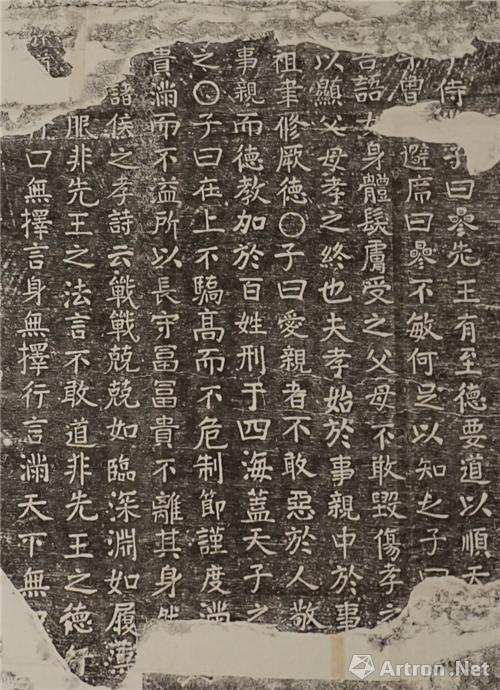 侍子曰參先王有至德要道以順天
曾避席曰參不敏何足以知之子曰
語女身體髮膚受之父母不敢毀傷孝之
以顯父母孝之終也夫孝始於事親中於事
祖聿修厥德〇子曰愛親者不敢惡於人敬
事親而德教加於百姓刑于四海蓋天子之
之〇子曰在上不驕高而不危制節謹度滿
貴滿而不益所以長守冨冨貴不離其身然
諸侯之孝詩云戰戰兢兢如臨深淵如履薄
服非先王之法言不敢道非先王之德行
口無擇言身無擇行言滿天下無
Artron.Net